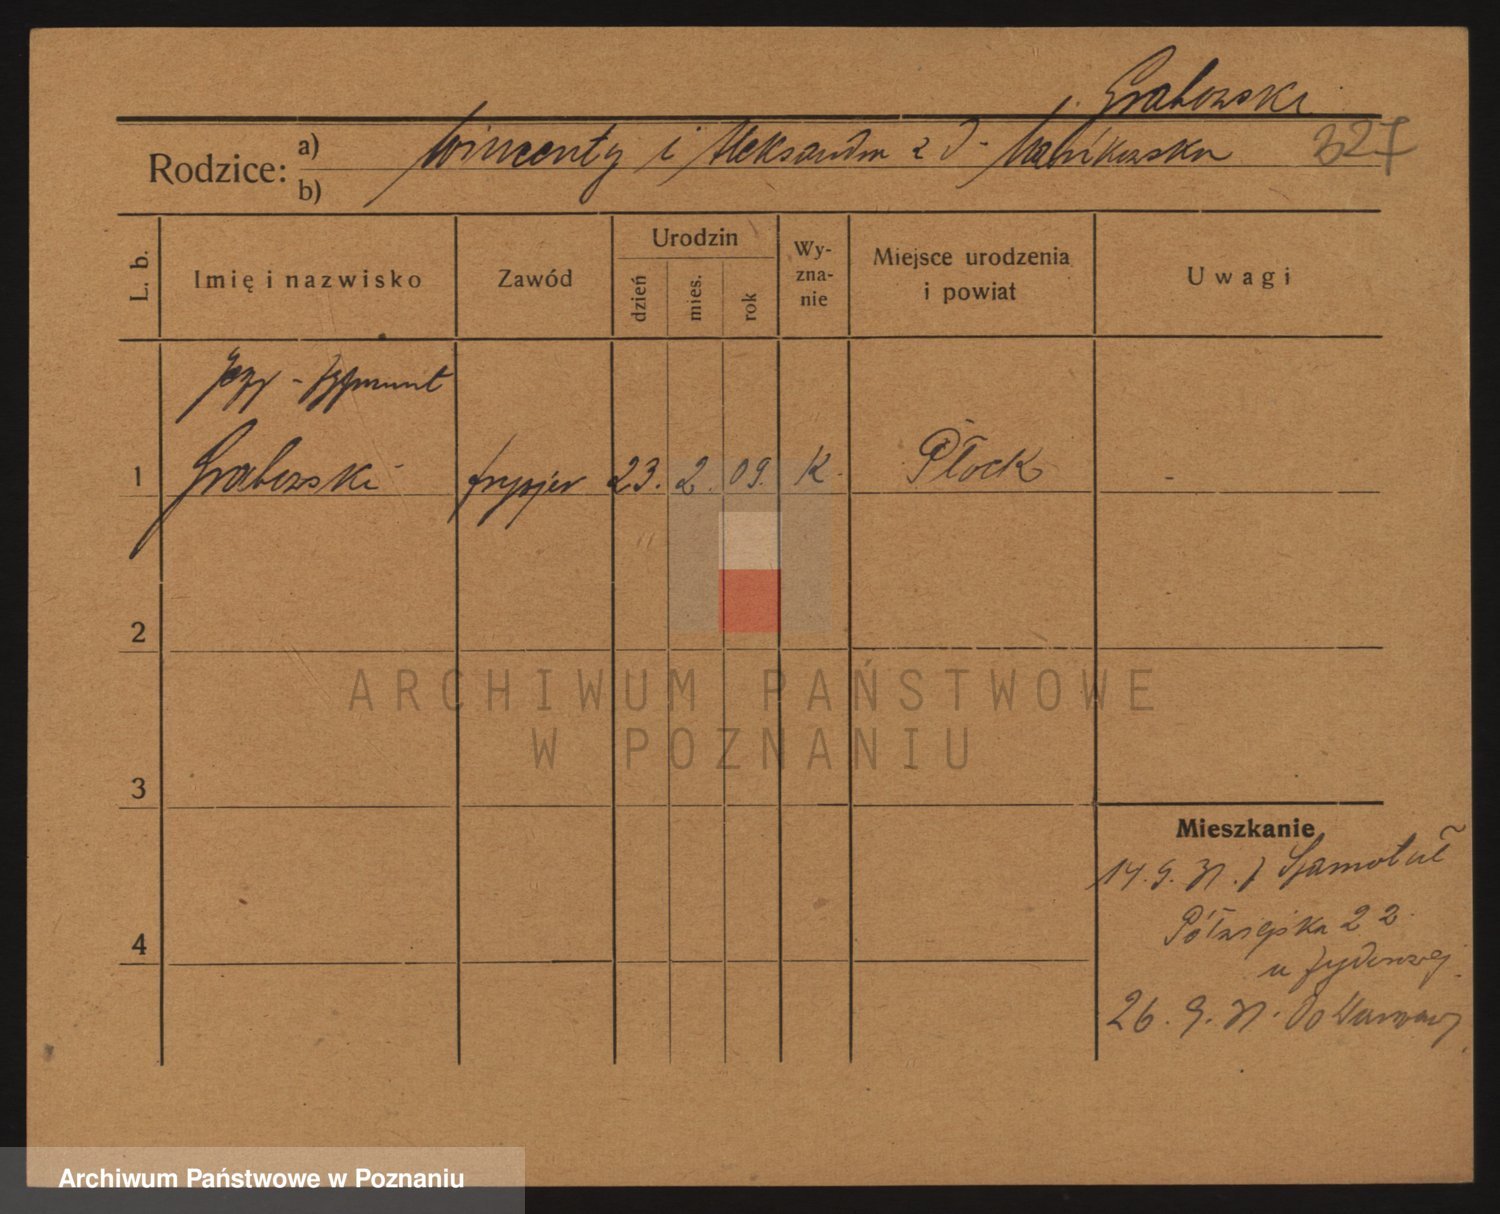 Grabowski
327
Rodzice: a) Wincenty i Aleksandra z d.
b)
L. b.
Imię i nazwisko
Zawód
Urodzin
dzień
mies.
rok
Wy-
zna-
nie
Miejsce urodzenia
i powiat
Uwagi
Jerzy - Zygmunt
1 Grabowski fryzjer 23. 2. 09. k. Płock -
2
3
4
Mieszkanie
14. 9. 31. z Szamotuł
Półwiejska 22
u
26. 9. 31. Do Warszawy
ARCHIWUM PAŃSTWOWE
W POZNANIU
Archiwum Państwowe w Poznaniu